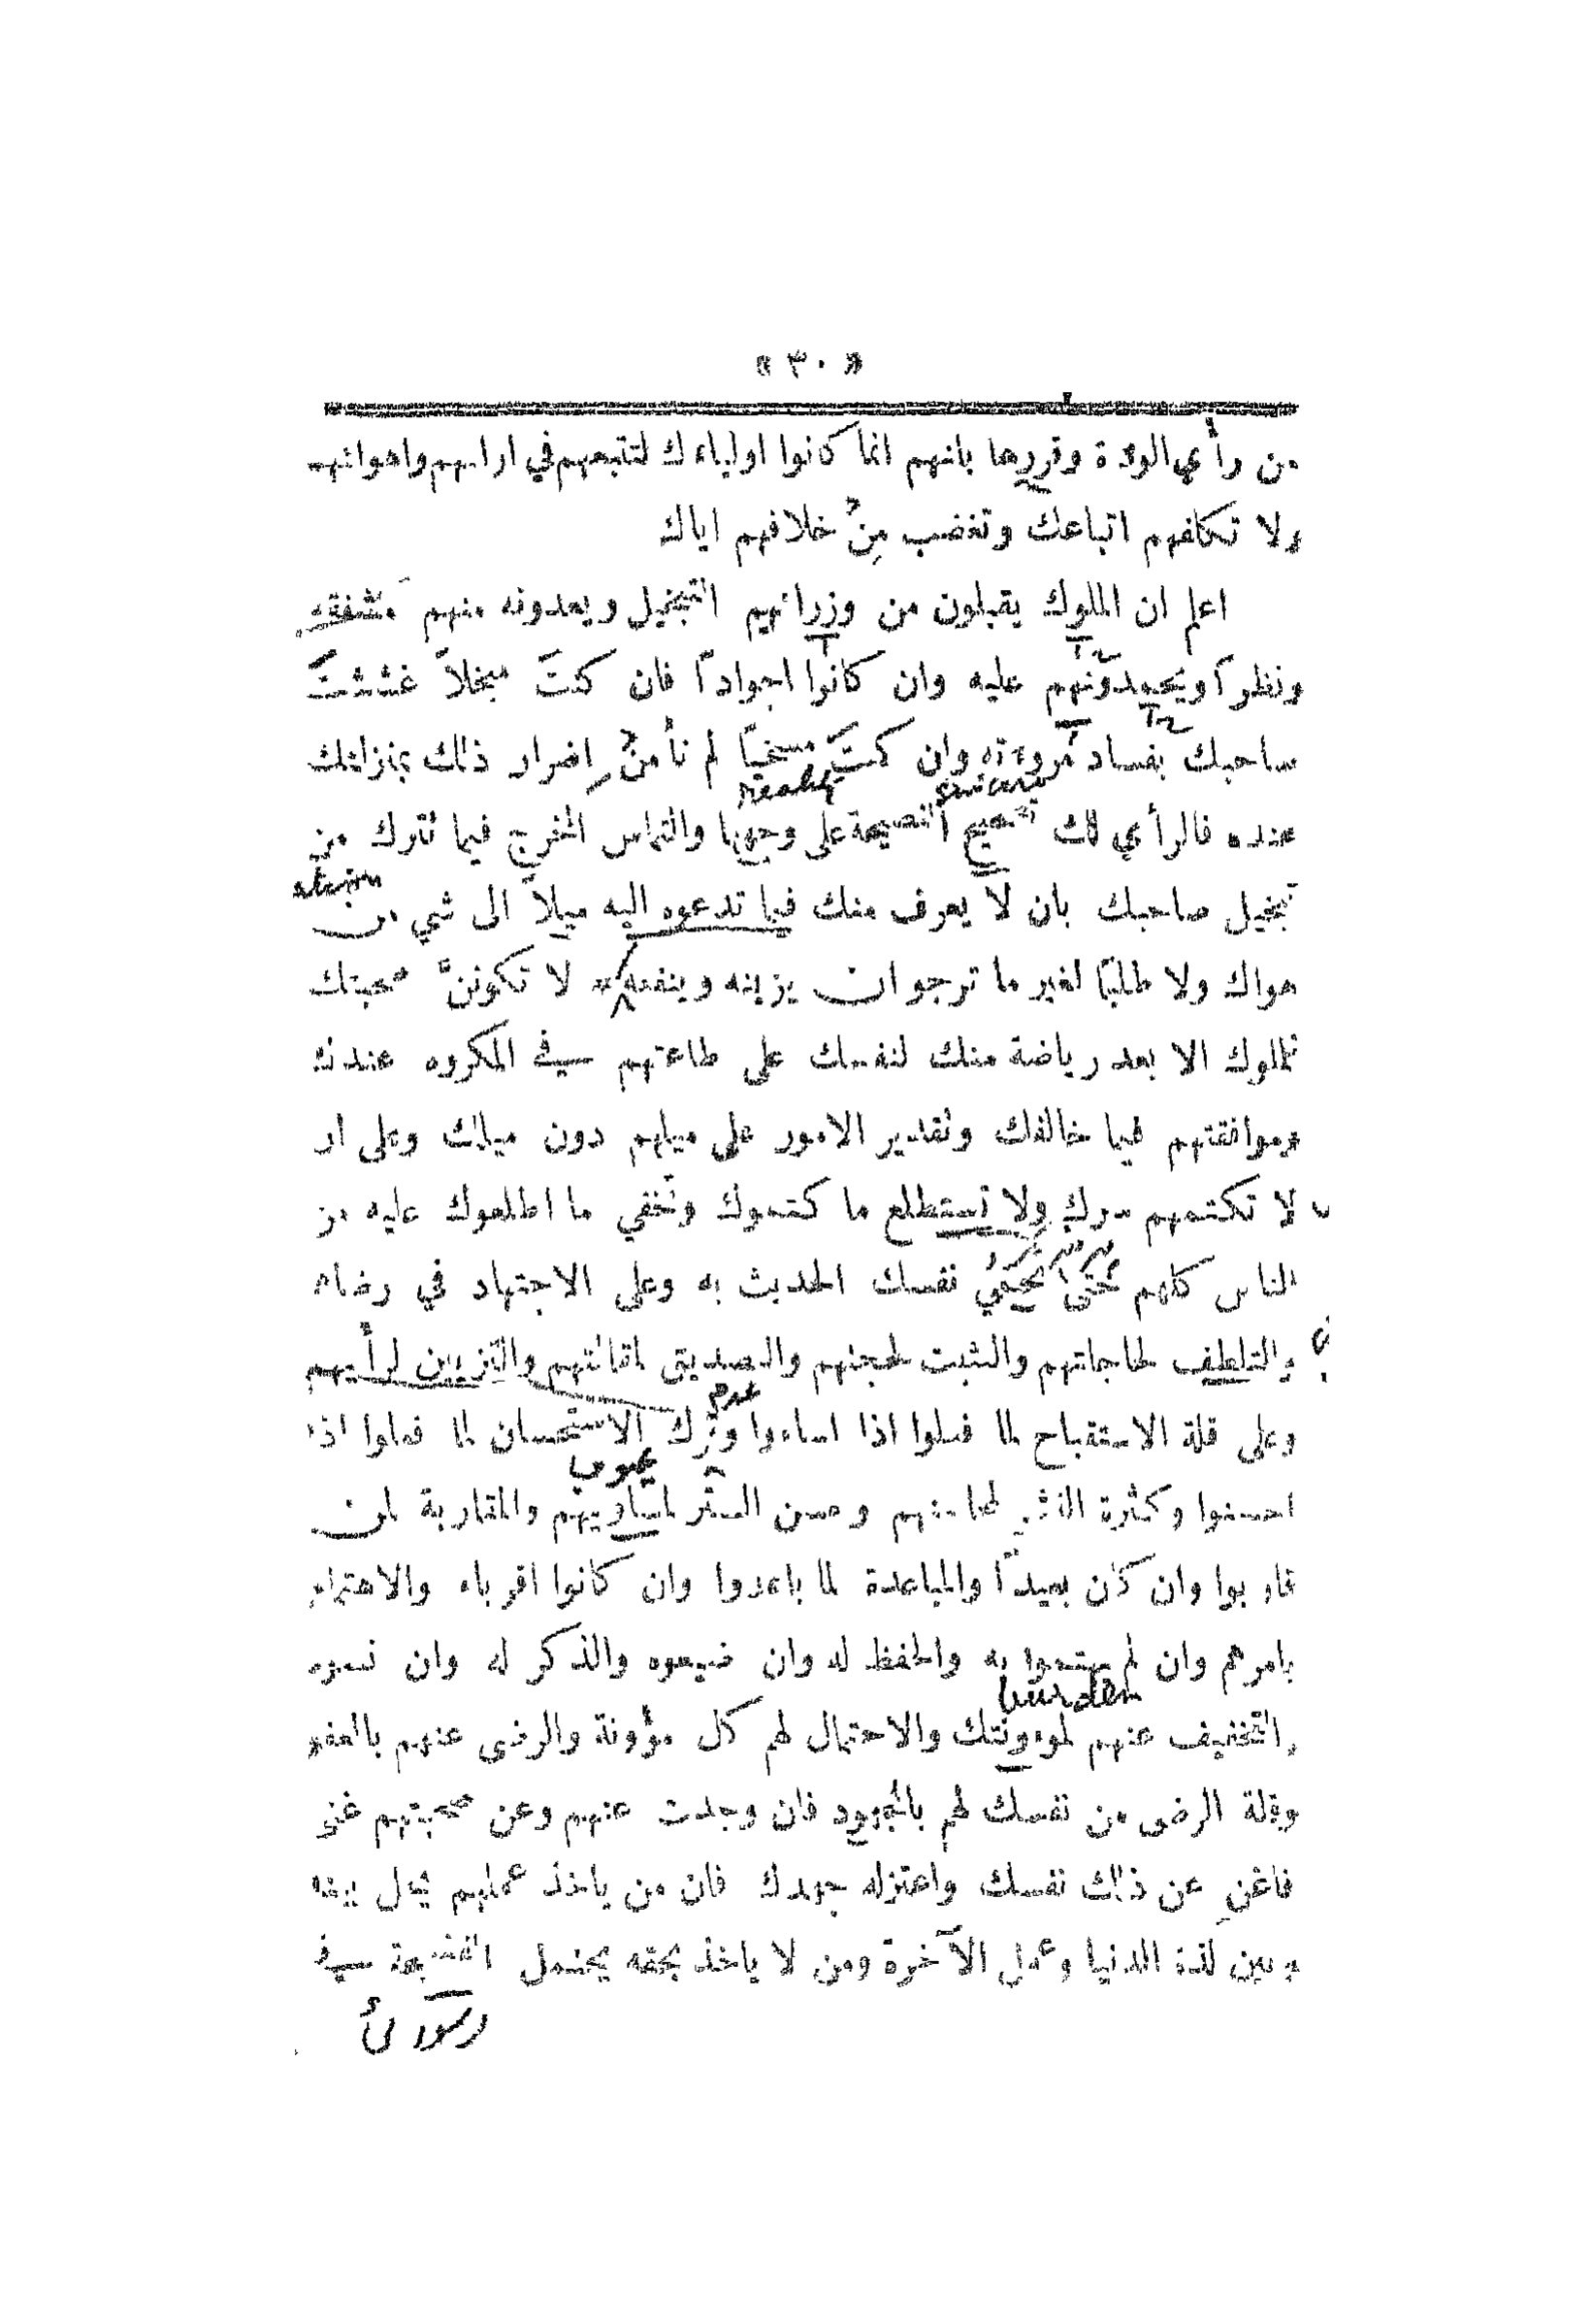 « ٣٠ »
من رأي الولاة وقررها بانهم انما كانوا اولياءك لتتبعهم في ارائهم واهوائهم
ولا تكلفهم اتباعك وتغضب مِنْ خلافهم اياك
اعلم ان الملوك يقبلون من وزرائهم التبخيل ويعدونه منهم شفقة
ونظراً ويحمدونهم عليه وان كانوا اجواداً فان كنتَ مبخلاً غششتَ
صاحبك بفساد مُروءته وان كنتَ مسخيًا لم تأمنْ إضرار ذلك بمنزلتك
really
عنده فالرأي لك تصحيح النصيحة على وجهها والتماس المخرج فيما تترك من
تبخيل صاحبك بان لا يعرف منك فيما تدعوه اليه ميلاً الى شي من
هواك ولا طلبًا لغير ما ترجو ان يزينه وينفعه * لا تكوننَّ صحبتك
للملوك الا بعد رياضة منك لنفسك على طاعتهم في المكروه عندك
وموافقتهم فيما خالفك وتقدير الامور على ميلهم دون ميلك وعلى ان
لا تكتمهم سرك ولا تستطلع ما كتموك وتخفي ما اطلعوك عليه من
الناس كلهم حتى تحمي نفسك الحديث به وعلى الاجتهاد في رضاهم
والتلطف لحاجاتهم والتثبت لحجتهم والتصديق لمقالتهم والتزيين لرأيهم
عدم
وعلى قلة الاستقباح لما فعلوا اذا اساءوا وترك الاستحسان لما فعلوا اذا
عيوب
احسنوا وكثرة النشر لمحاسنهم وحسن الستر لمساويهم والمقاربة لمن
قاربوا وان كان بعيداً والمباعدة لما باعدوا وان كانوا اقرباء والاهتمام
بامرهم وان لم يهتموا به والحفظ له وان ضيعوه والذكر له وان نسوه
burden
والتخفيف عنهم لموءونتك والاحتمال لهم كل مؤونة والرضى عنهم بالعفو
وقلة الرضى من نفسك لهم بالمجهود فان وجدت عنهم وعن صحبتهم غنى
فاغنِ عن ذلك نفسك واعتزله جهدك فان من ياخذ عملهم يحل بينه
وبين لذة الدنيا وعمل الآخرة ومن لا ياخذ بحقه يحتمل الفضيحة في